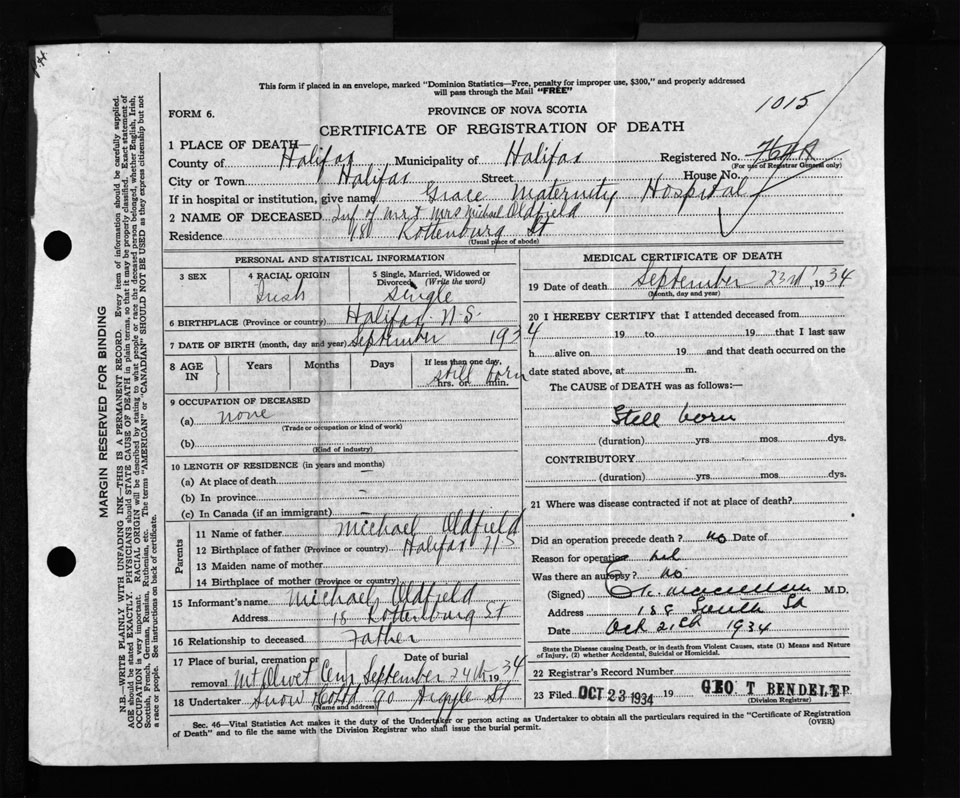 This form if placed in an envelope, marked "Dominion Statistics—Free, penalty for improper use, $300," and properly addressed
will pass through the Mail "FREE"
1015
FORM 6.
PROVINCE OF NOVA SCOTIA
CERTIFICATE OF REGISTRATION OF DEATH
1 PLACE OF DEATH—
County of Halifax Municipality of Halifax Registered No.
(For use of Registrar General only)
City or Town Halifax Street House No.
If in hospital or institution, give name Grace Maternity Hospital
2 NAME OF DECEASED Inf of Mr & Mrs Michael Oldfield
Residence 18 Rottenburg St
(Usual place of abode)
PERSONAL AND STATISTICAL INFORMATION
3 SEX
4 RACIAL ORIGIN Irish
5 Single, Married, Widowed or Divorced (Write the word) Single
6 BIRTHPLACE (Province or country) Halifax N.S.
7 DATE OF BIRTH (month, day and year) September 1934
8 AGE IN Years Months Days If less than one day, hrs. or min. still born
9 OCCUPATION OF DECEASED
(a) none
(Trade or occupation or kind of work)
(b)
(Kind of industry)
10 LENGTH OF RESIDENCE (in years and months)
(a) At place of death
(b) In province
(c) In Canada (if an immigrant)
Parents
11 Name of father Michael Oldfield
12 Birthplace of father (Province or country) Halifax N S
13 Maiden name of mother
14 Birthplace of mother (Province or country)
15 Informant's name Michael Oldfield
Address 18 Rottenburg St
16 Relationship to deceased Father
17 Place of burial, cremation or removal Mt Olivet Cem Date of burial September 24th 1934
18 Undertaker Snow & Co Ltd 90 Argyle St
(Name and address)
MEDICAL CERTIFICATE OF DEATH
19 Date of death September 23rd, 1934
(Month, day and year)
20 I HEREBY CERTIFY that I attended deceased from
19 to 19 that I last saw
h alive on 19 and that death occurred on the
date stated above, at m.
The CAUSE of DEATH was as follows:—
Still born
(duration) yrs. mos. dys.
CONTRIBUTORY
(duration) yrs. mos. dys.
21 Where was disease contracted if not at place of death?
Did an operation precede death? no Date of
Reason for operation nil
Was there an autopsy? no
(Signed) M.D.
Address 188 South St
Date Oct 21st 1934
State the Disease causing Death, or in death from Violent Causes, state (1) Means and Nature
of Injury, (2) whether Accidental, Suicidal or Homicidal.
22 Registrar's Record Number
23 Filed OCT 23 1934 19 GEO T BENDELER
(Division Registrar)
Sec. 46—Vital Statistics Act makes it the duty of the Undertaker or person acting as Undertaker to obtain all the particulars required in the "Certificate of Registration
of Death" and to file the same with the Division Registrar who shall issue the burial permit. (OVER)
MARGIN RESERVED FOR BINDING
N.B.—WRITE PLAINLY WITH UNFADING INK—THIS IS A PERMANENT RECORD. Every item of information should be carefully supplied.
AGE should be stated EXACTLY. PHYSICIANS should STATE CAUSE OF DEATH in plain terms, so that it may be properly classified. Exact statement of
OCCUPATION is very important. RACIAL ORIGIN will be described by stating to what people or race the deceased person belonged, whether English, Irish,
Scottish, French, German, Russian, Ruthenian, etc. The terms "AMERICAN" or "CANADIAN" SHOULD NOT BE USED as they express citizenship but not
a race or people. See instructions on back of certificate.